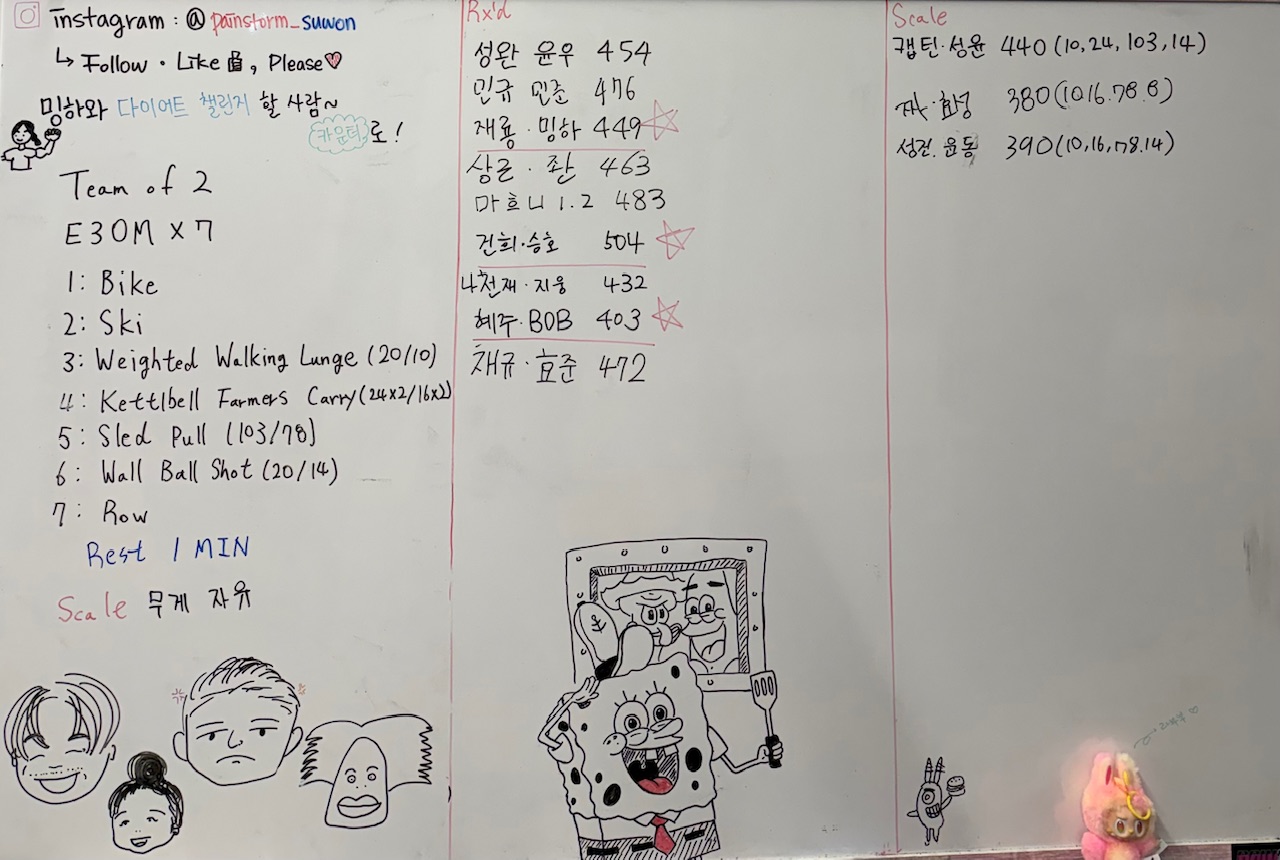 instagram : @painstorm_suwon
↳ Follow · Like, Please
밍하와 다이어트 챌린지 할 사람~
카운터로!
Team of 2
E3OM x 7
1: Bike
2: Ski
3: Weighted Walking Lunge (20/10)
4: Kettlbell Farmers Carry (24x2/16x2)
5: Sled Pull (103/78)
6: Wall Ball Shot (20/14)
7: Row
Rest 1 MIN
Scale 무게 자유
Rx'd
성완 윤우 454
민규 민준 476
재룡·밍하 449
상근·좐 463
마흐니 1.2 483
건희·승호 504
나천재·지웅 432
혜주·BOB 403
채규·효준 472
Scale
캡틴·성윤 440 (10, 24, 103, 14)
효성 380 (10 16. 78. 8)
성건. 윤동 390 (10, 16, 78. 14)